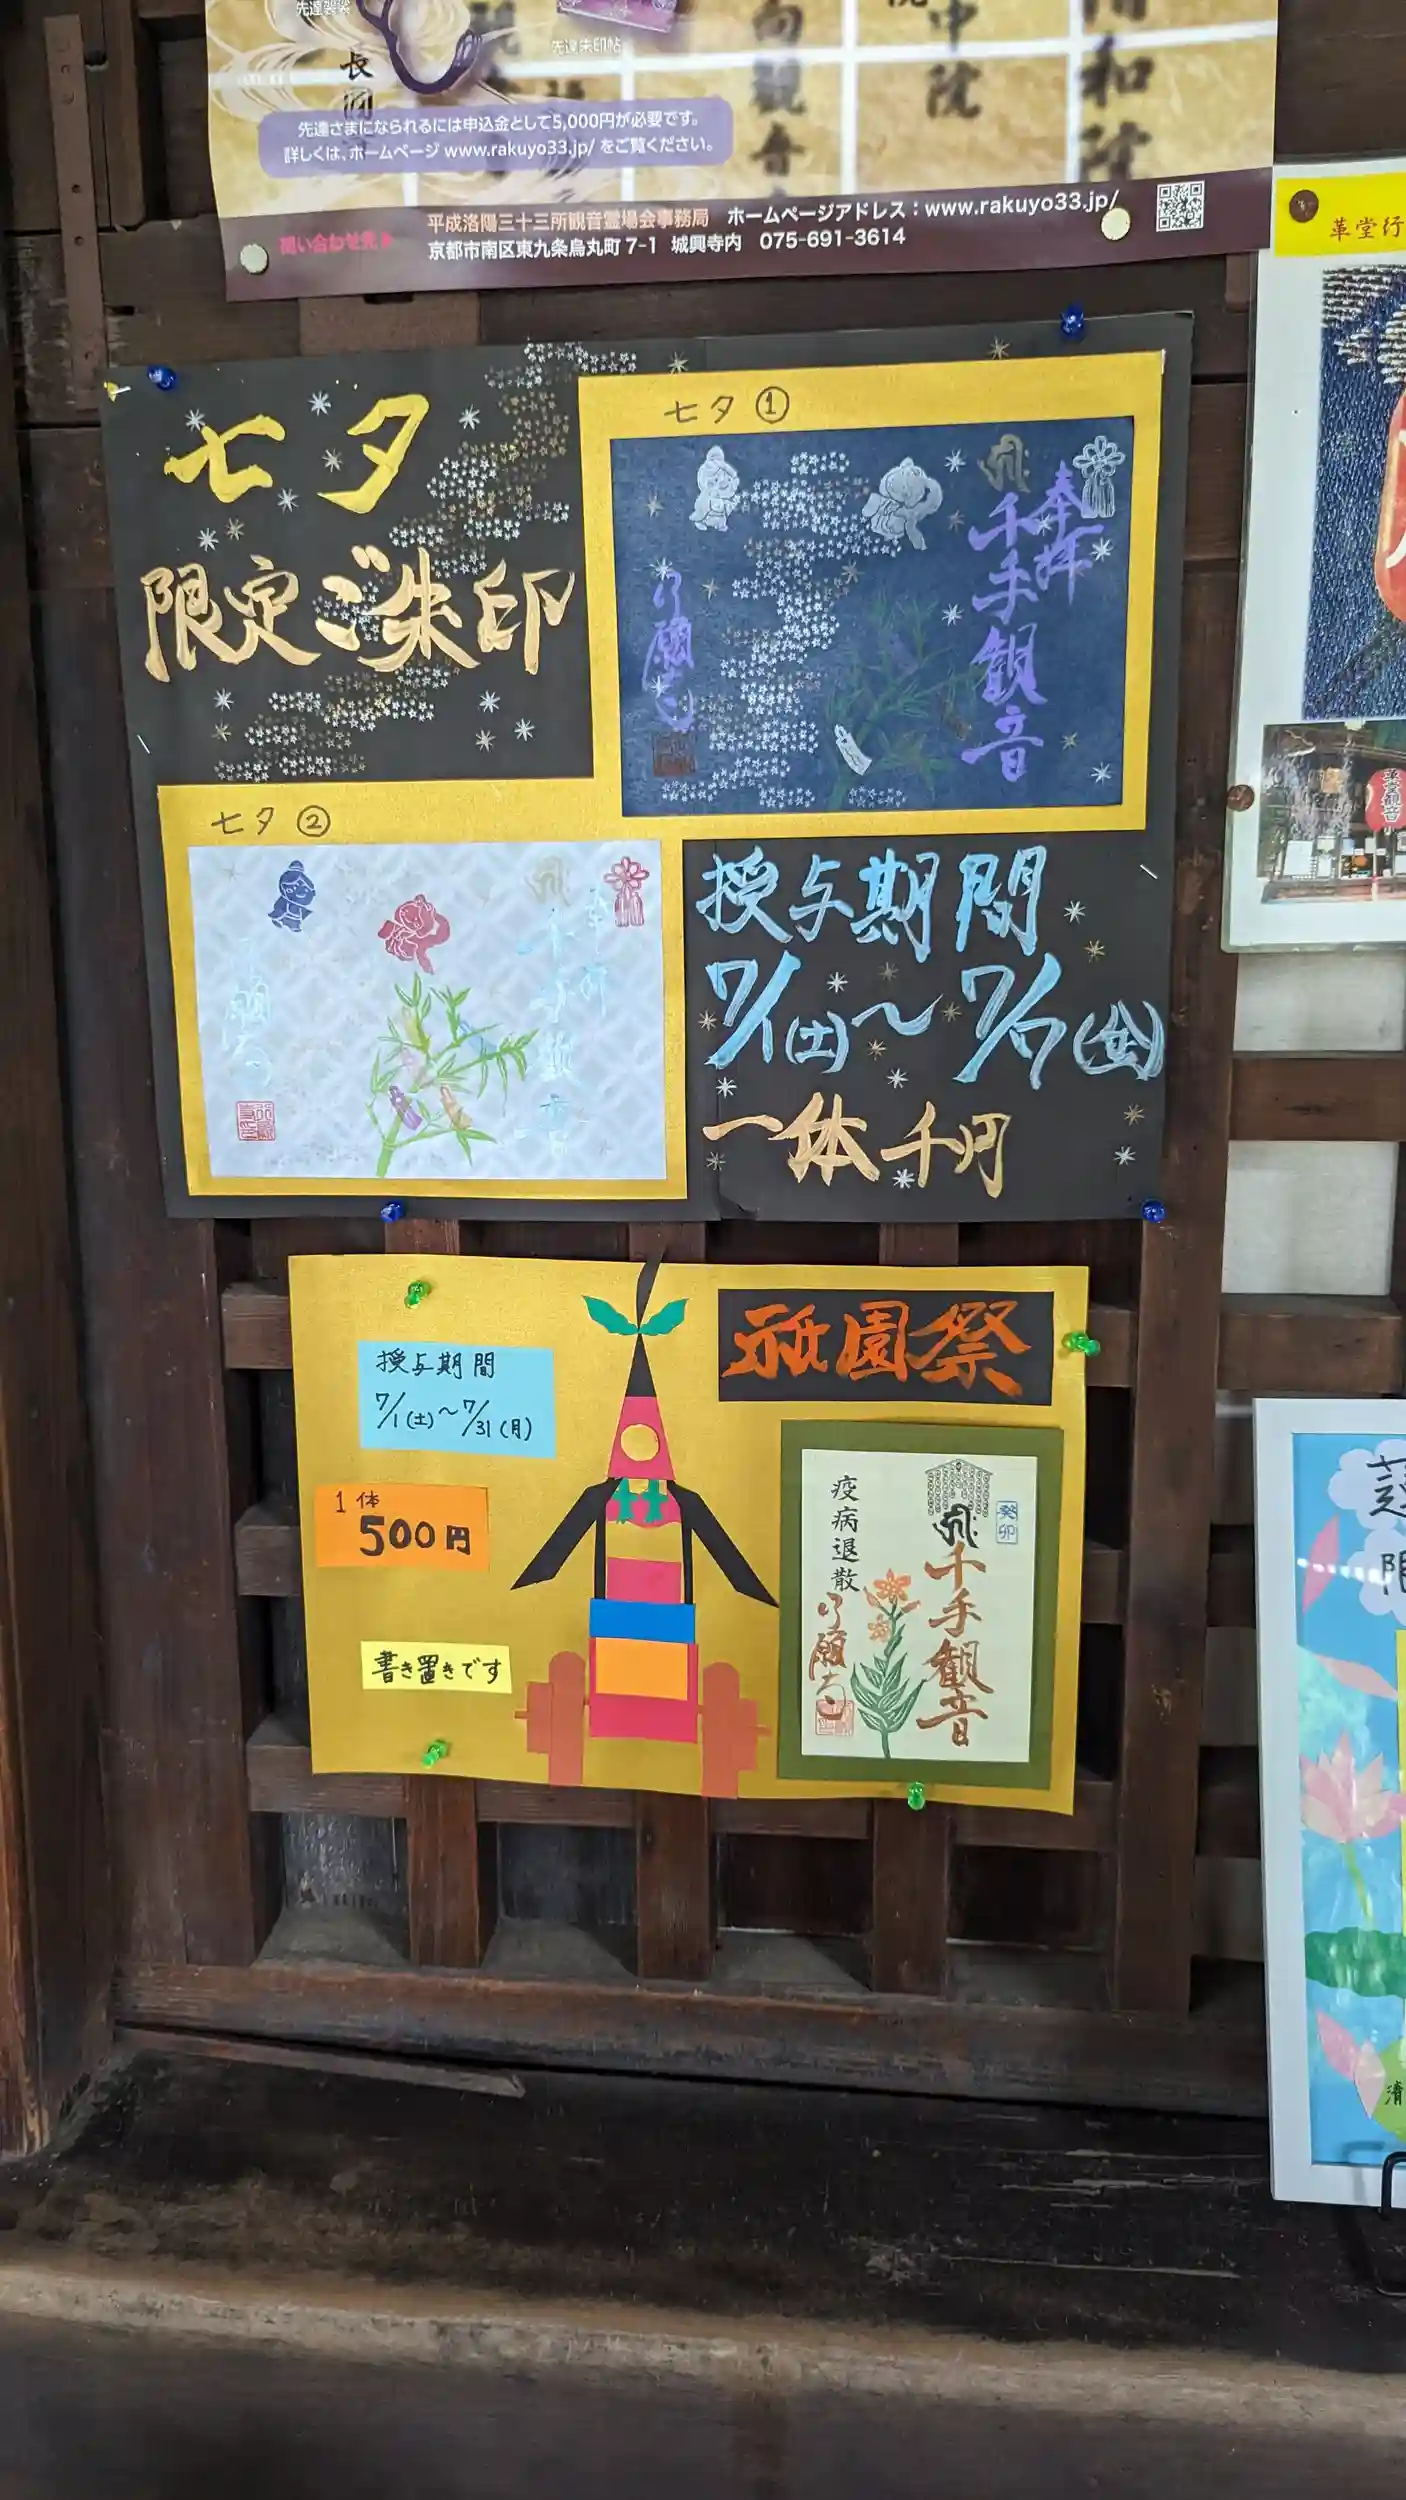 先達袈裟
先達朱印帖
長圓
向観音
中院
清和院
先達さまになられるには申込金として5,000円が必要です。
詳しくは、ホームページ www.rakuyo33.jp/ をご覧ください。
問い合わせ先
平成洛陽三十三所観音霊場会事務局 ホームページアドレス：www.rakuyo33.jp/
京都市南区東九条烏丸町7-1 城興寺内 075-691-3614
革堂行
七夕
限定ご朱印
七夕①
奉拝
千手観音
行願寺
七夕②
奉拝
千手観音
行願寺
授与期間
7/1(土)～7/7(金)
一体千円
革堂観音
祇園祭
授与期間
7/1(土)～7/31(月)
1体
500円
書き置きです
癸卯
千手観音
疫病退散
行願寺
限
清